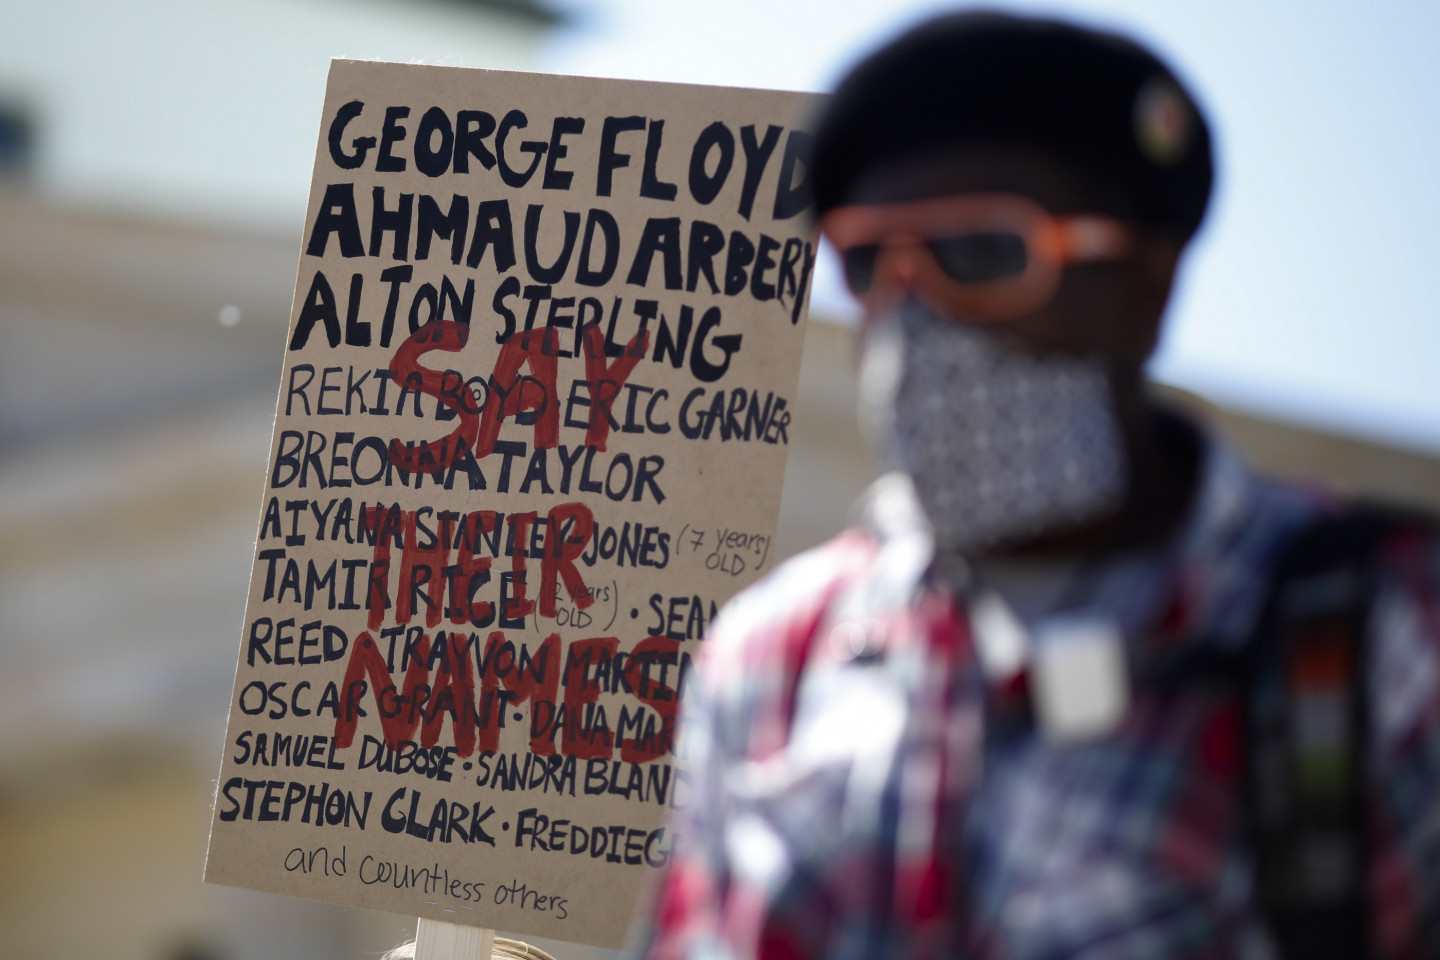 GEORGE FLOYD
AHMAUD ARBERY
ALTON STERLING
REKIA BOYD ERIC GARNER
BREONNA TAYLOR
AIYANA STANLEY-JONES (7 years OLD)
TAMIR RICE (12 years OLD) · SEAN
REED · TRAYVON MARTIN
OSCAR GRANT · DANA MART
SAMUEL DUBOSE · SANDRA BLAND
STEPHON CLARK · FREDDIE G
and countless others
SAY
THEIR
NAMES